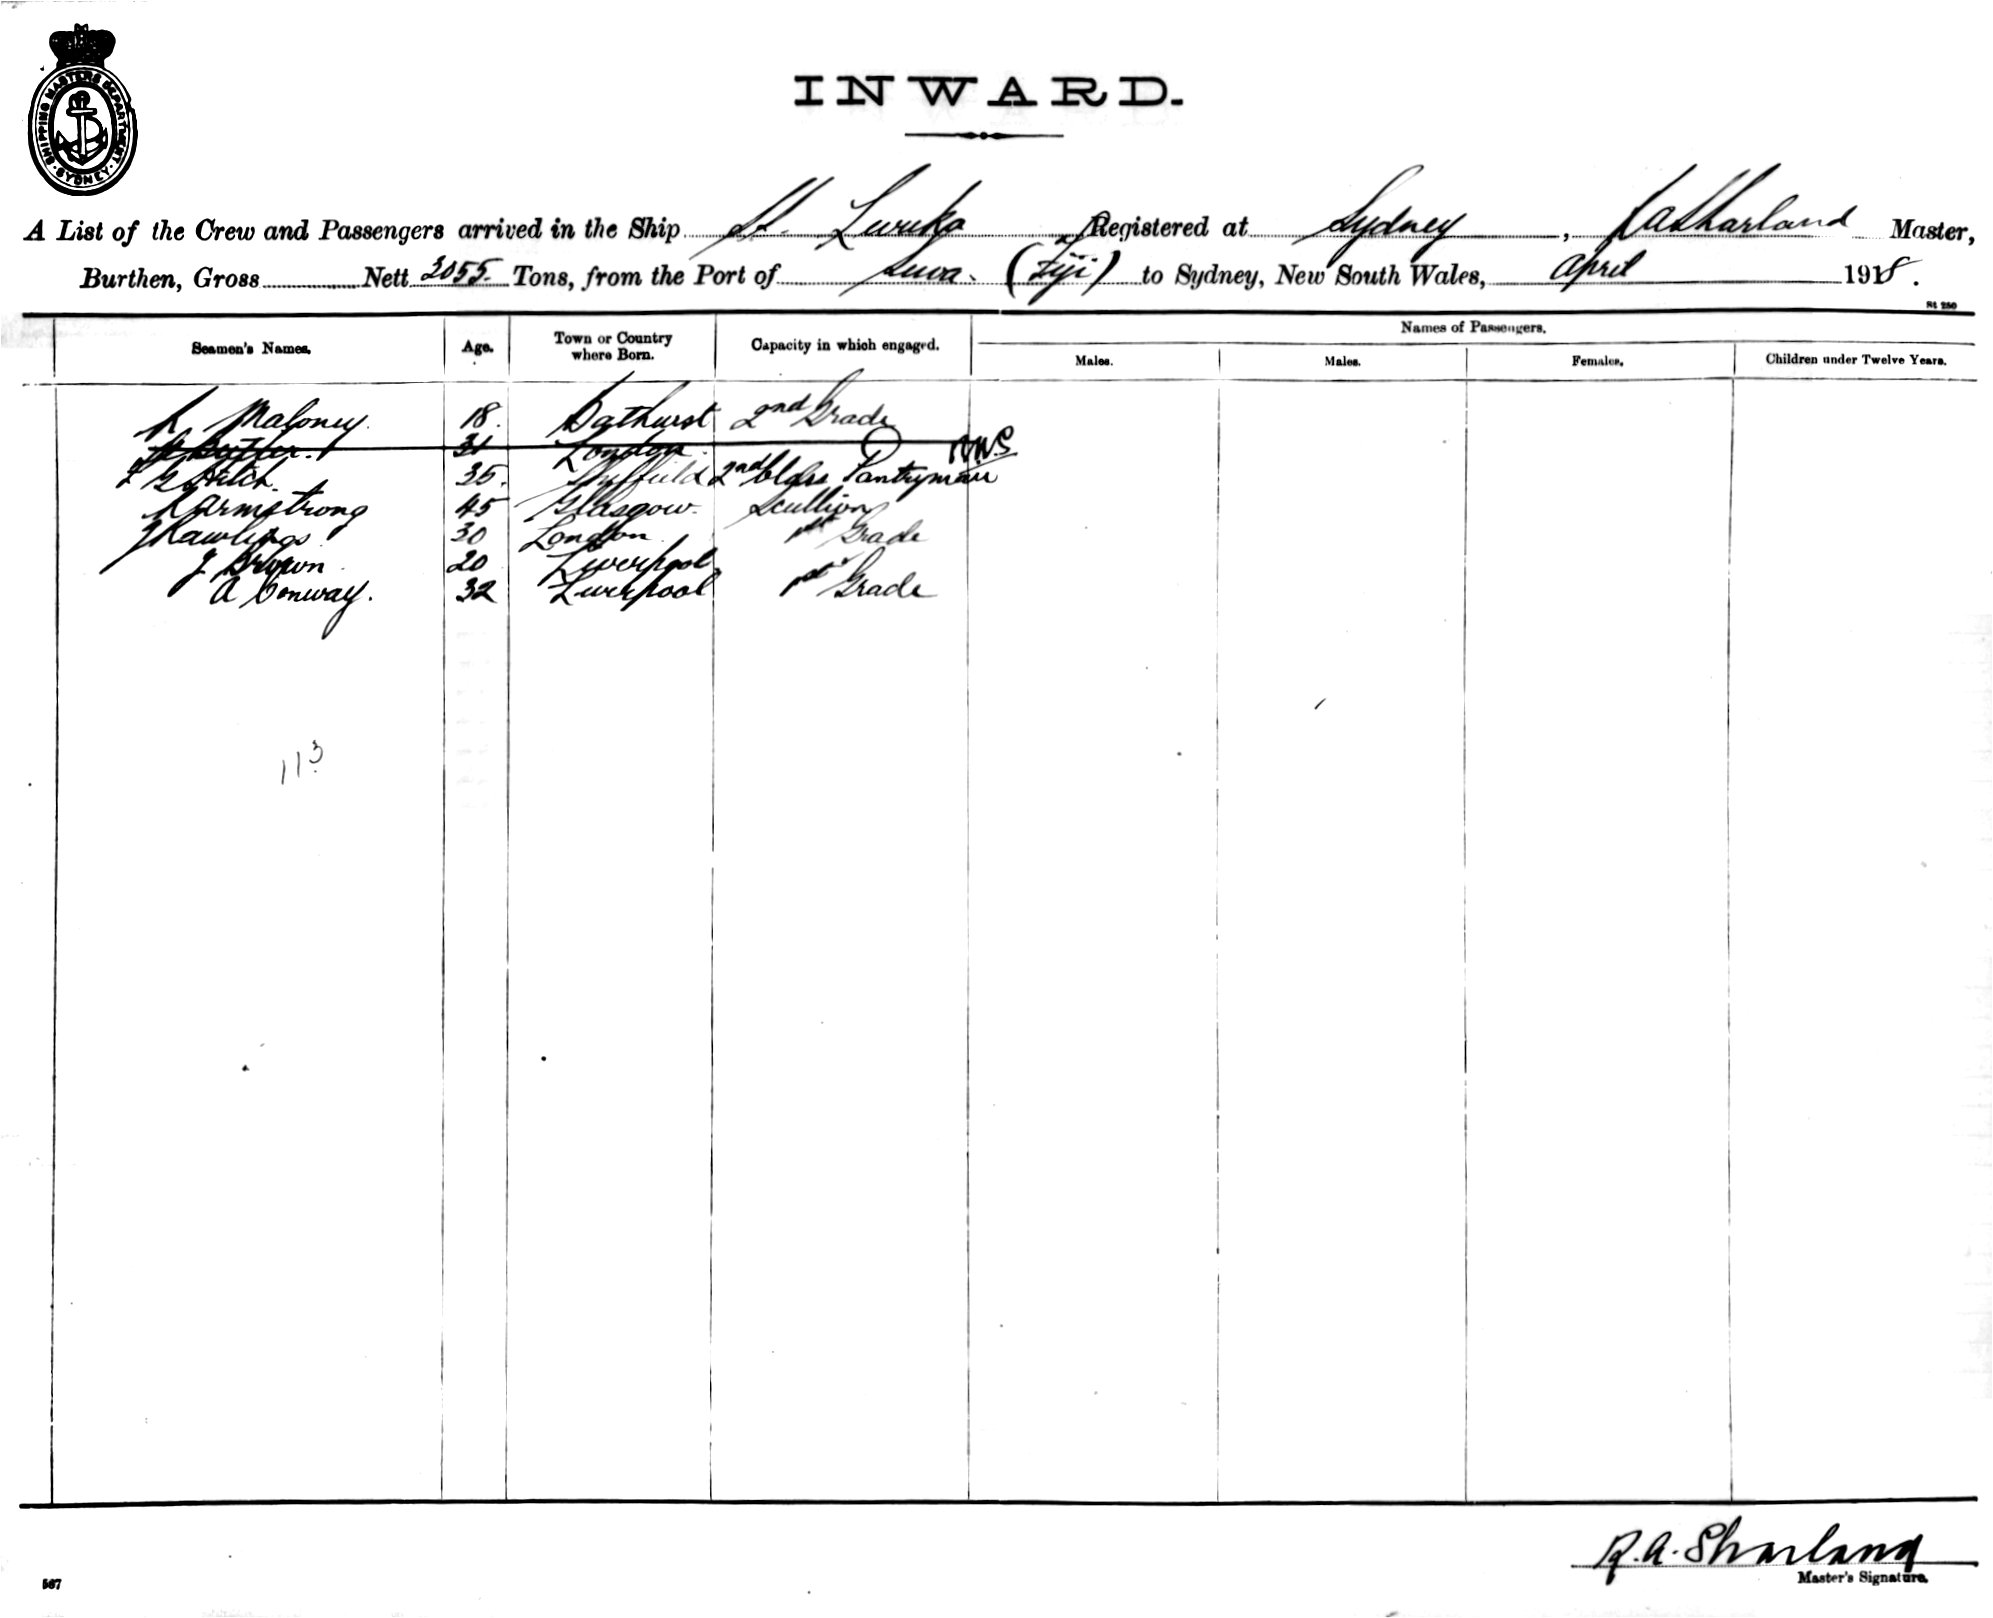 SHIPPING MASTERS DEPARTMENT SYDNEY
INWARD.
A List of the Crew and Passengers arrived in the Ship St. Levuka Registered at Sydney, R A Sharland Master,
Burthen, Gross Nett 3055 Tons, from the Port of Suva. (Fiji) to Sydney, New South Wales, April 1918.
St 250
Seamen's Names. Age. Town or Country where Born. Capacity in which engaged. Names of Passengers.
Males. Males. Females. Children under Twelve Years.
Maloney. 18. Bathurst 2nd Grade
Butler. 31 London.
Hitch. 35. Sheffield 2nd Class Pantryman
Armstrong 45 Glasgow. Scullion
Rawlings 30 London 1st Grade
J Brown 20 Liverpool
A Conway. 32 Liverpool 1st Grade
113
R. A. Sharland
Master's Signature.
567